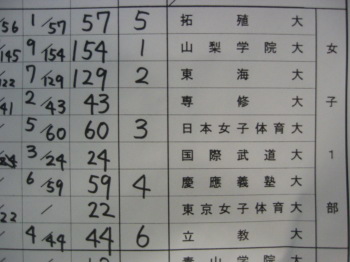 56 1/57 57 5 拓殖大
145 9/154 154 1 山梨学院大
122 7/129 129 2 東海大
41 2/43 43 専修大
/ 5/60 60 3 日本女子体育大
3/24 24 国際武道大
/ 6/59 59 4 慶應義塾大
22 / 22 東京女子体育大
/ 4/44 44 6 立教大
青山学院大
女子1部